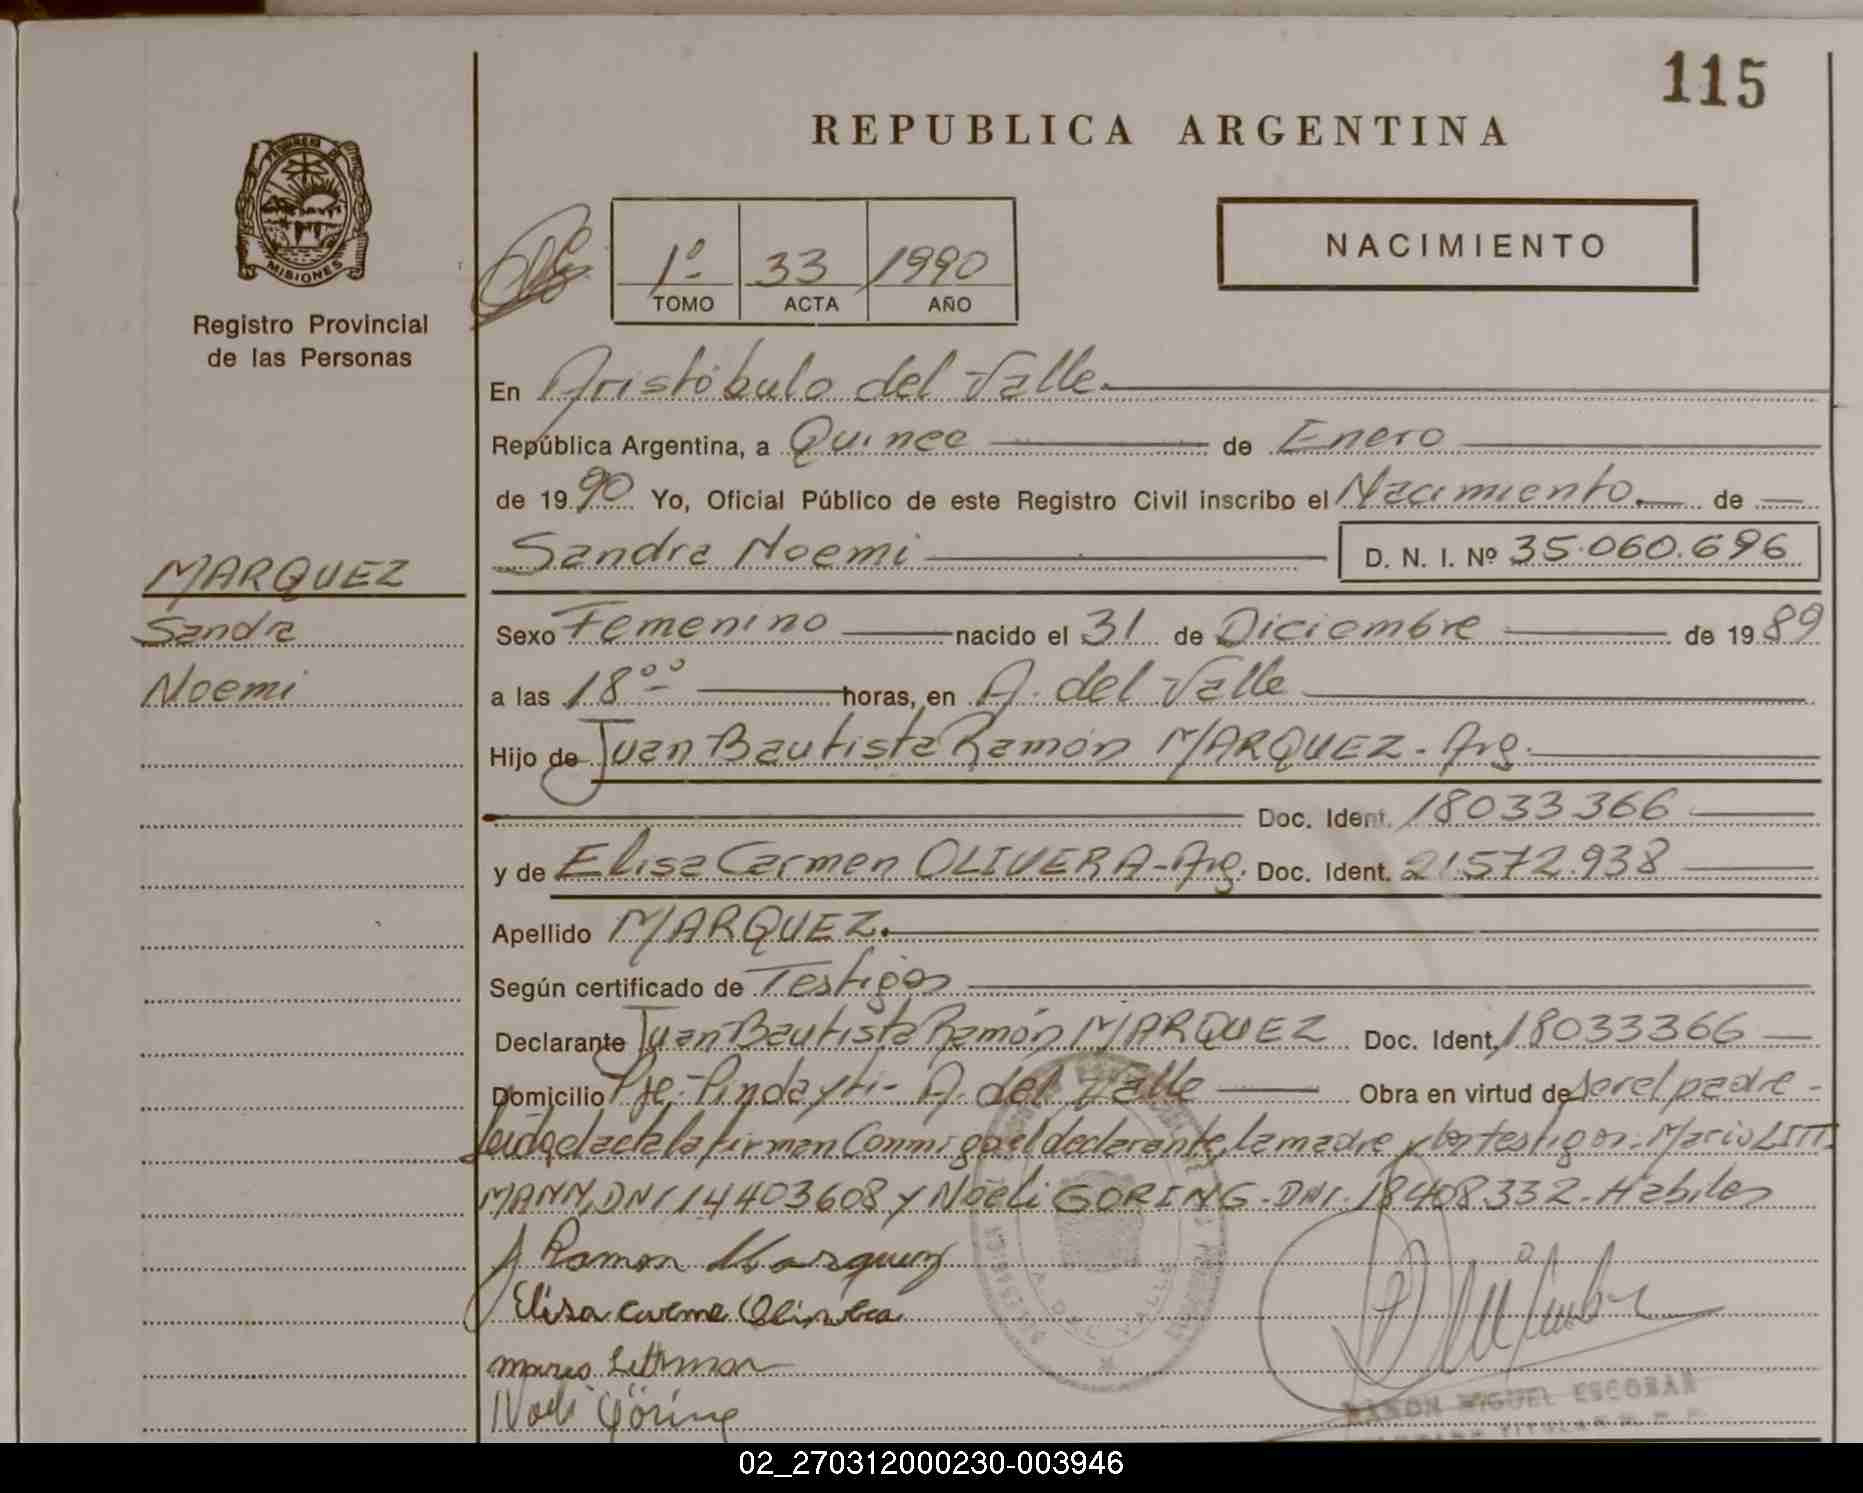 115
REPUBLICA ARGENTINA
PROVINCIA DE
MISIONES
Registro Provincial
de las Personas
1º 33 1990
TOMO ACTA AÑO
NACIMIENTO
En Aristóbulo del Valle.
República Argentina, a Quince de Enero
de 1990 Yo, Oficial Público de este Registro Civil inscribo el Nacimiento. de
Sandra Noemi D. N. I. Nº 35.060.696
MARQUEZ
Sandra
Noemi
Sexo Femenino nacido el 31 de Diciembre de 1989
a las 18ºº horas, en A. del Valle
Hijo de Juan Bautista Ramón MARQUEZ - Arg.
Doc. Ident. 18033366
y de Elisa Carmen OLIVERA - Arg. Doc. Ident. 21.572.938
Apellido MARQUEZ.
Según certificado de Testigos
Declarante Juan Bautista Ramón MARQUEZ Doc. Ident. 18033366
Domicilio Pje. Pindayti - A. del Valle Obra en virtud de ser el padre -
Leida el acta la firman Conmigo el declarante, la madre y los testigos: Mario LITT
MANN, DNI 14403608 y Noeli GORING - DNI. 18408332 - Habiles
J Ramon Marquez
Elisa carme Olivera
mario Littman
Noeli Göring
A. DEL VALLE
RAMON MIGUEL ESCOBAR
02_270312000230-003946